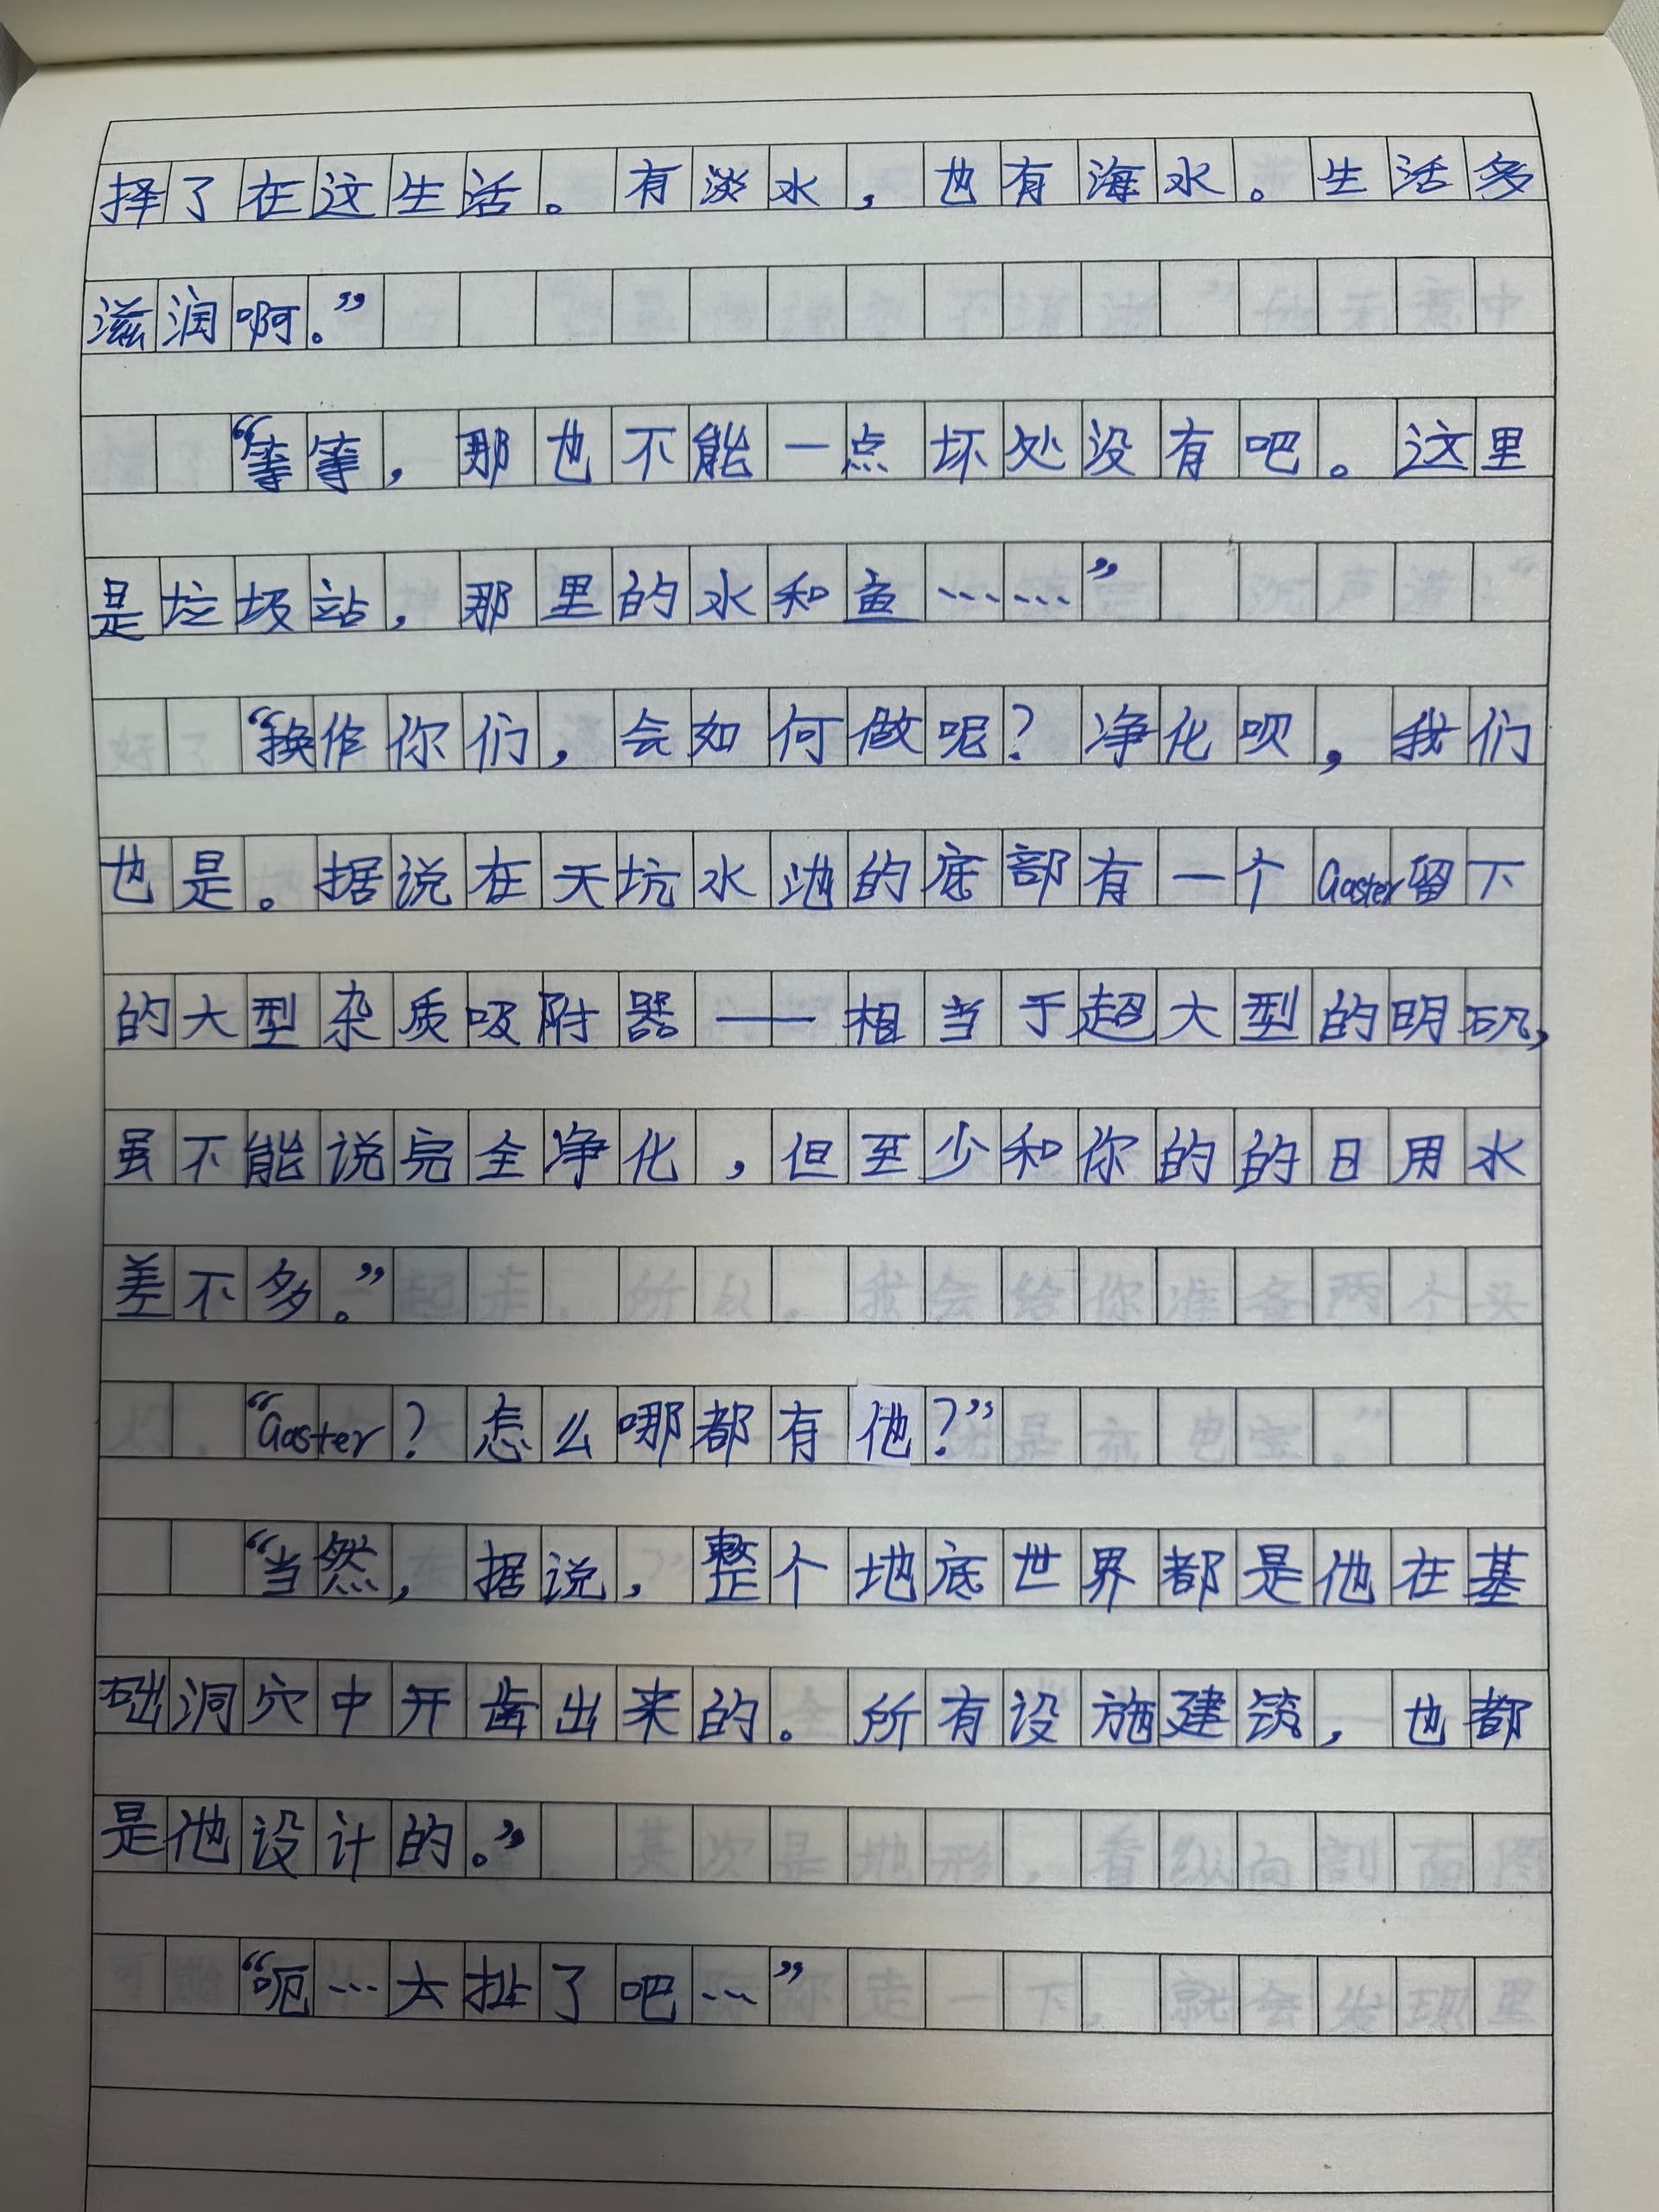 择了在这生活。有淡水，也有海水。生活多
滋润啊。”
“等等，那也不能一点坏处没有吧。这里
是垃圾站，那里的水和鱼……”
“换作你们，会如何做呢？净化呗，我们
也是。据说在天坑水池的底部有一个Gaster留下
的大型杂质吸附器——相当于超大型的明矾，
虽不能说完全净化，但至少和你的的日用水
差不多。”
“Gaster？怎么哪都有他？”
“当然，据说，整个地底世界都是他在基
础洞穴中开凿出来的。所有设施建筑，也都
是他设计的。”
“呃…太扯了吧…”